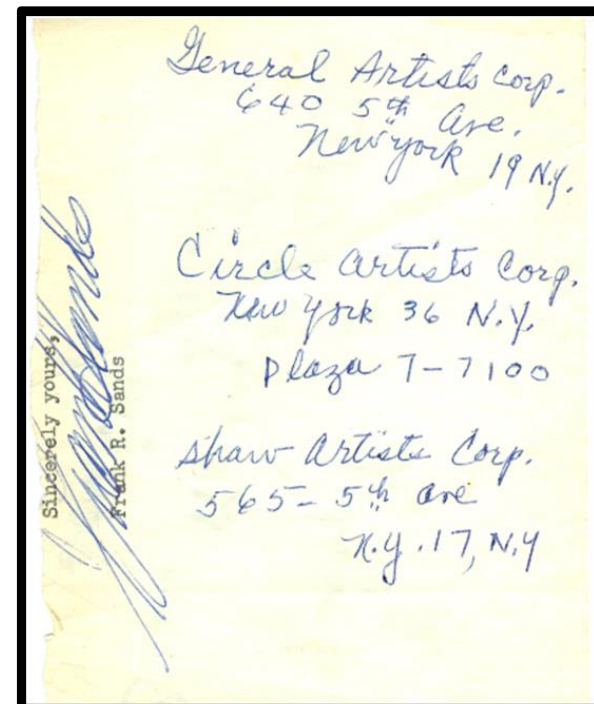 General Artists Corp.
640 5th Ave.
New York 19 N.Y.
Circle Artists Corp.
New York 36 N.Y.
Plaza 7-7100
Shaw Artists Corp.
565-5th Ave
N.Y. 17, N.Y
Sincerely yours,
Frank R. Sands